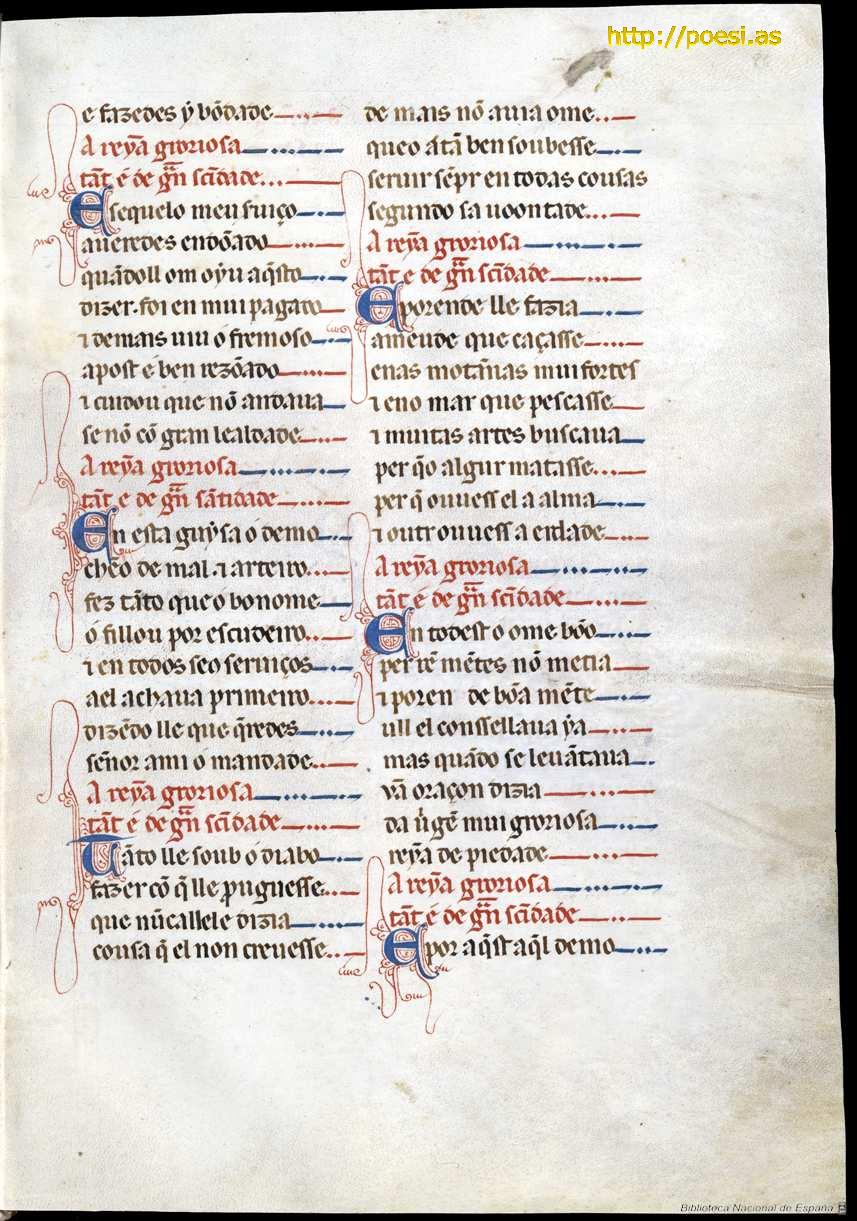 http://poesi.as
e fazedes ẏ bõdade
A reyᷓa grorioſa
tãt é de grᷓn ſcĩdade
E ſequelo meu ſuiço
aueredes endõado
quãdoll om oẏu aq̃ſto
dizer. foi en mui pagado
⁊ demais uiu ó fremoſo
apoſt é ben rezõado
⁊ cuidou que nõ andaua
ſe nõ cõ gram lealdade
A reyña grorioſa
tãt e de grᷓn sãtidade
En eſta guyſa o demo
chẽo de mal ⁊ arteiro
fez tãto que o bonome
ó fillou por eſcudeiro
⁊ en todos ſeo ſeruiços
a el achaua primeiro
dizẽdo lle que q̃redes
ſeñor a mi o mandade
A reyña grorioſa
tãt é de grᷓn ſcĩdade
Tãto lle ſoub ó diabo
fazer cõ q̃ lle prouguesſe
que nũcallele dizia
couſa q̃ el non creuesſe
de mais nõ auia ome
queo átã ben ſoubesſe
ſeruir ſẽpr en todas couſas
ſegundo ſa uoontade
A reyña grorioſa
tãt e de grᷓn ſcĩdade
E porende lle fazia
ameude que caçasſe
enas motañas mui fortes
⁊ eno mar que peſcasſe
⁊ muitas artes buſcaua
per q̃o algur matasſe
per q̃ ouuesſ el a alma
⁊ outr ouuesſ a erdade
A reyña grorioſa
tãt é de grᷓn ſcĩdade
En todeſt o ome bõo
per rẽ mẽtes nõ metia
⁊ poren de bõa mẽte
u ll el conſſellaua ẏa
mas quãdo ſe leuãtaua
vã oraçon dizia
da uᷓgẽ mui grorioſa
reyña de piedade
A reyña grorioſa
tãt é de grᷓn ſcĩdade
E por aq̃ſt aq̃l demo
Biblioteca Nacional de España